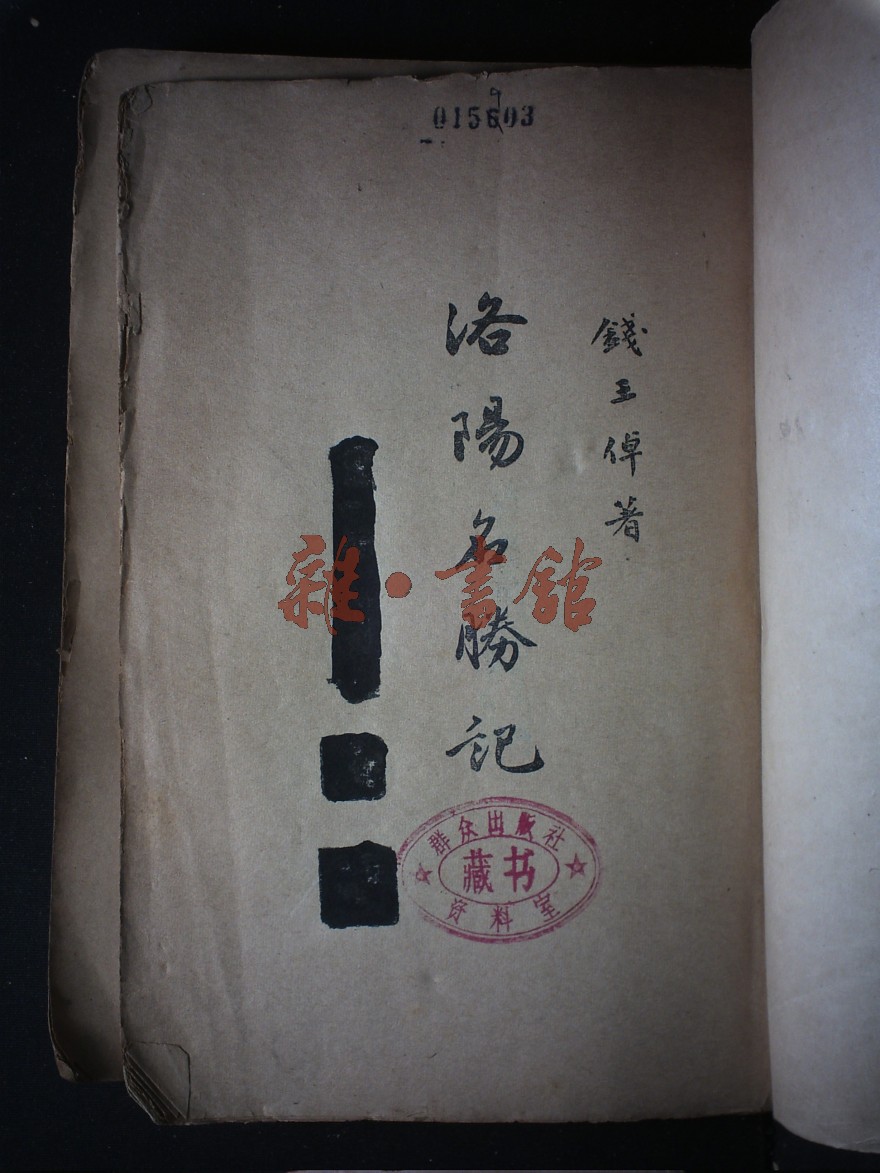 015603
錢王倬著
洛陽名勝記
雜·書館
群众出版社
藏书
资料室